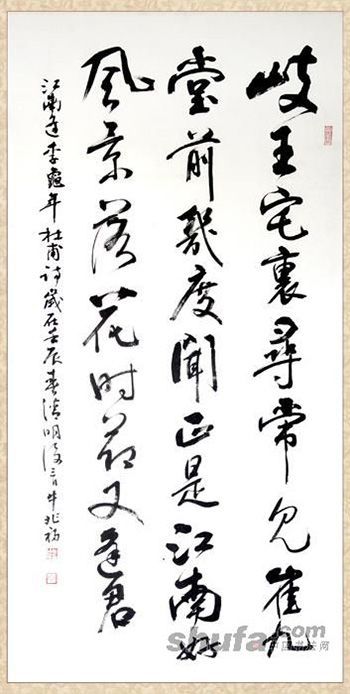 岐王宅裏尋常見崔九
堂前幾度聞正是江南好
風景落花时節又逢君
江南逢李龜年杜甫詩歲在壬辰春清明後三日牛兆福
shufa.com
中国书法网